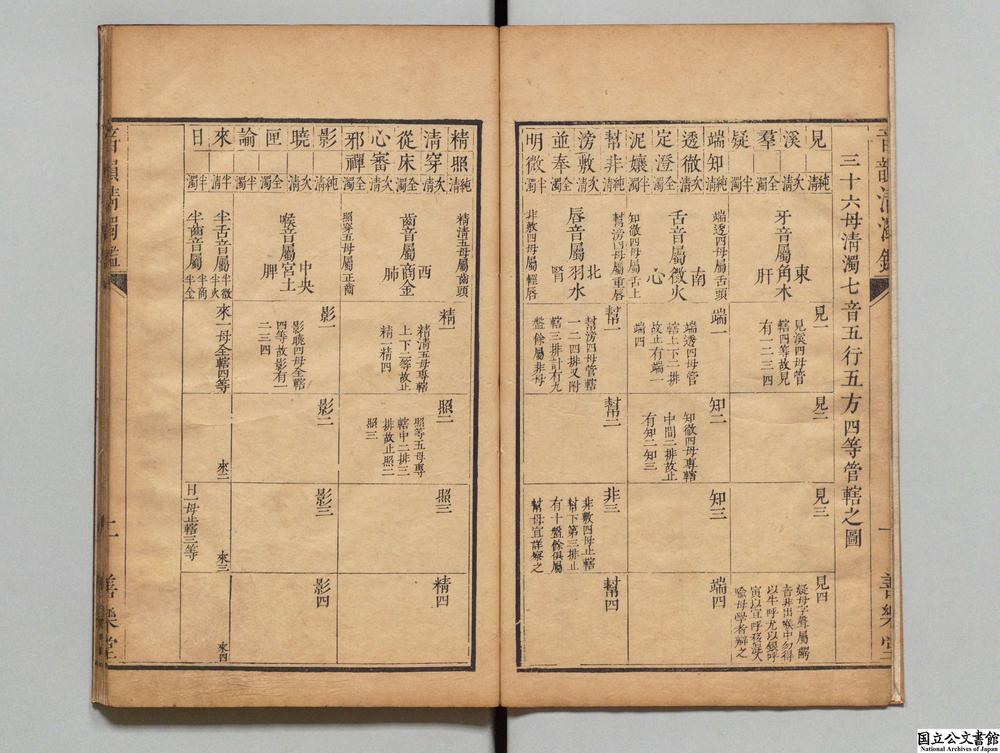 三十六母清濁七音五行五方四等管轄之圖
見 純清
溪 次清
羣 全濁
疑 半濁
牙音屬角木
東
肝
見一
見溪四母管
轄四等故見
有一二三四
見二
見三
見四
疑母字聲屬齶
音非出喉中勿得
以牛呼尤以銀呼
寅以宜呼移混入
喻母學者辯之
端知 純清
透徹 次清
定澄 全濁
泥孃 半濁
端透四母屬舌頭
舌音屬徵火
南
心
知徹四母屬舌上
端一
端透四母管
轄上下二排
故止有端一
端四
知二
知徹四母專轄
中間二排故止
有知二知三
知三
端四
幫非 純清
滂敷 次清
並奉 全濁
明微 半濁
幫滂四母屬重唇
唇音屬羽水
北
腎
非敷四母屬輕唇
幫一
幫滂四母管轄
一二四排又附
轄三排計有九
盤餘屬非母
幫二
非三
非敷四母止轄
幫下第三排止
有十盤餘俱屬
幫母宜詳察之
幫四
精照 純清
清穿 次清
從床 全濁
心審 次清
邪禪 全濁
精清五母屬齒頭
齒音屬商金
西
肺
照穿五母屬正齒
精一
精清五母專轄
上下二等故止
精一精四
照二
照等五母專
轄中二排三
排故止照二
照三
照三
精四
影 純清
曉 次清
匣 全濁
喻 半濁
喉音屬宮土
中央
脾
影一
影曉四母全轄
四等故影有一
二三四
影二
影三
影四
來 半清
日 半濁
半舌音屬
半徵
半火
半齒音屬
半商
半金
來一母全轄四等
來二
來三
來四
日一母止轄三等
音韻清濁鑑
一
善樂堂
国立公文書館
National Archives of Japan